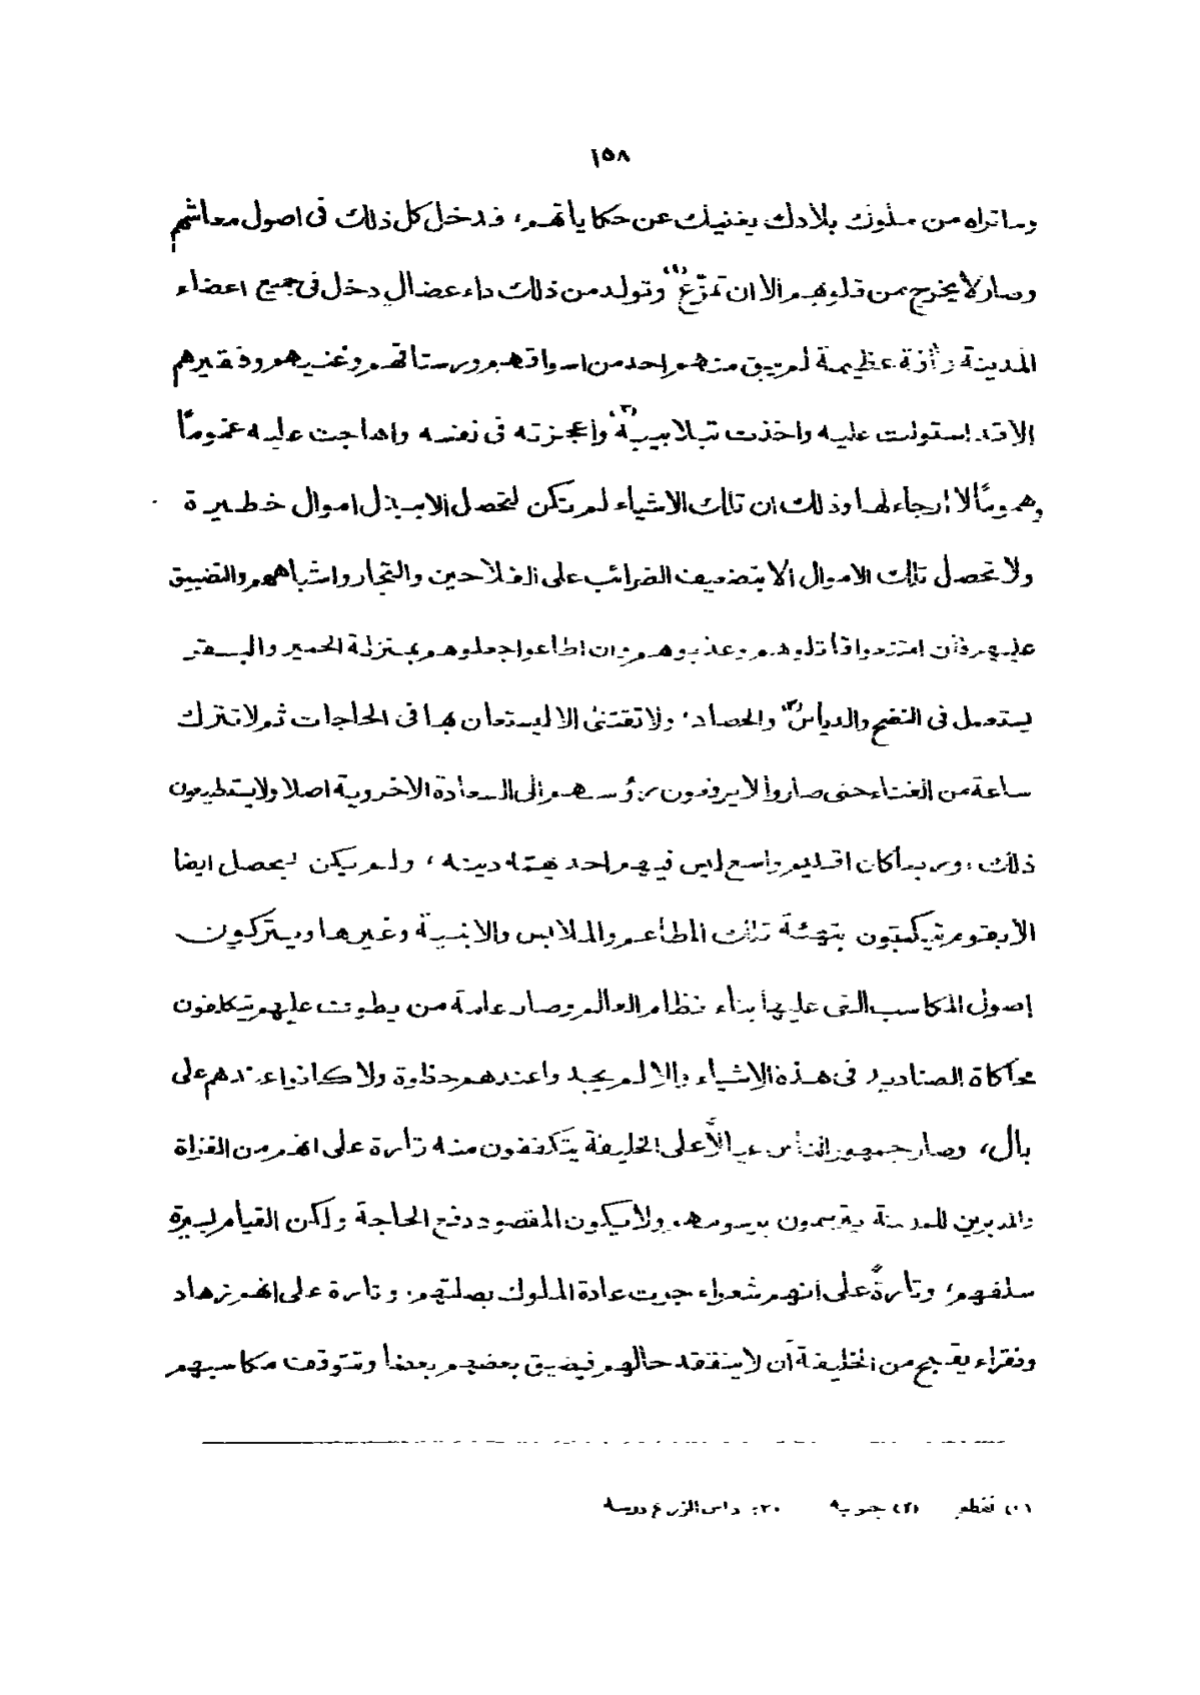 ١٥٨
وما تراه من ملوك بلادك يغنيك عن حكاياتهم، فدخل كل ذلك فى اصول معاشهم
وصار لا يخرج من قلوبهم الا ان تمزّع (١) وتولد من ذلك داء عضال دخل فى جميع اعضاء
المدينة وآفة عظيمة لم يبق منهم احد من اسواقهم ورستاقهم وغنيهم وفقيرهم
الا قد استولت عليه واخذت بتلابيبه (٢) واعجزته فى نفسه واهاجت عليه غمومًا
وهمومًا لا ارجاء لها وذلك ان تلك الاشياء لم تكن لتحصل الا ببذل اموال خطيرة
ولا تحصل تلك الاموال الا بتضعيف الضرائب على الفلاحين والتجار واشباههم والتضييق
عليهم فان امتنعوا قاتلوهم وعذبوهم وان اطاعوا جعلوهم بمنزلة الحمير والبقر
يستعمل فى النضح والدياس (٣) والحصاد، ولا تقتنى الا ليستعان بها فى الحاجات ثم لا تترك
ساعة من العناء حتى صاروا لا يرفعون رؤسهم الى السعادة الاخروية اصلا ولا يستطيعون
ذلك، وربما كان اقليم واسع ليس فيهم احد يهمّه دينه، ولم يكن ليحصل ايضا
الا بقوم يتكسبون بتهيئة تلك المطاعم والملابس والابنية وغيرها ويتركون
اصول المكاسب التى عليها بناء نظام العالم وصار عامة من يطوف عليهم يتكلفون
محاكاة الصناديد فى هذه الاشياء والا لم يجدوا عندهم حظوة ولا كانوا عندهم على
بال، وصار جمهور الناس عيالًا على الخليفة يتكففون منه تارة على انهم من الغزاة
والمدبرين للمدينة يترسمون برسومهم ولا يكون المقصود دفع الحاجة ولكن القيام بسيرة
سلفهم، وتارةً على انهم شعراء جرت عادة الملوك بصلتهم، وتارة على انهم زهاد
وفقراء يقبح من الخليفة أن لا يتفقد حالهم فيضيق بعضهم بعضا وتتوقف مكاسبهم
(١) تقطع (٢) جنوبه (٣) داس الزرع درسه